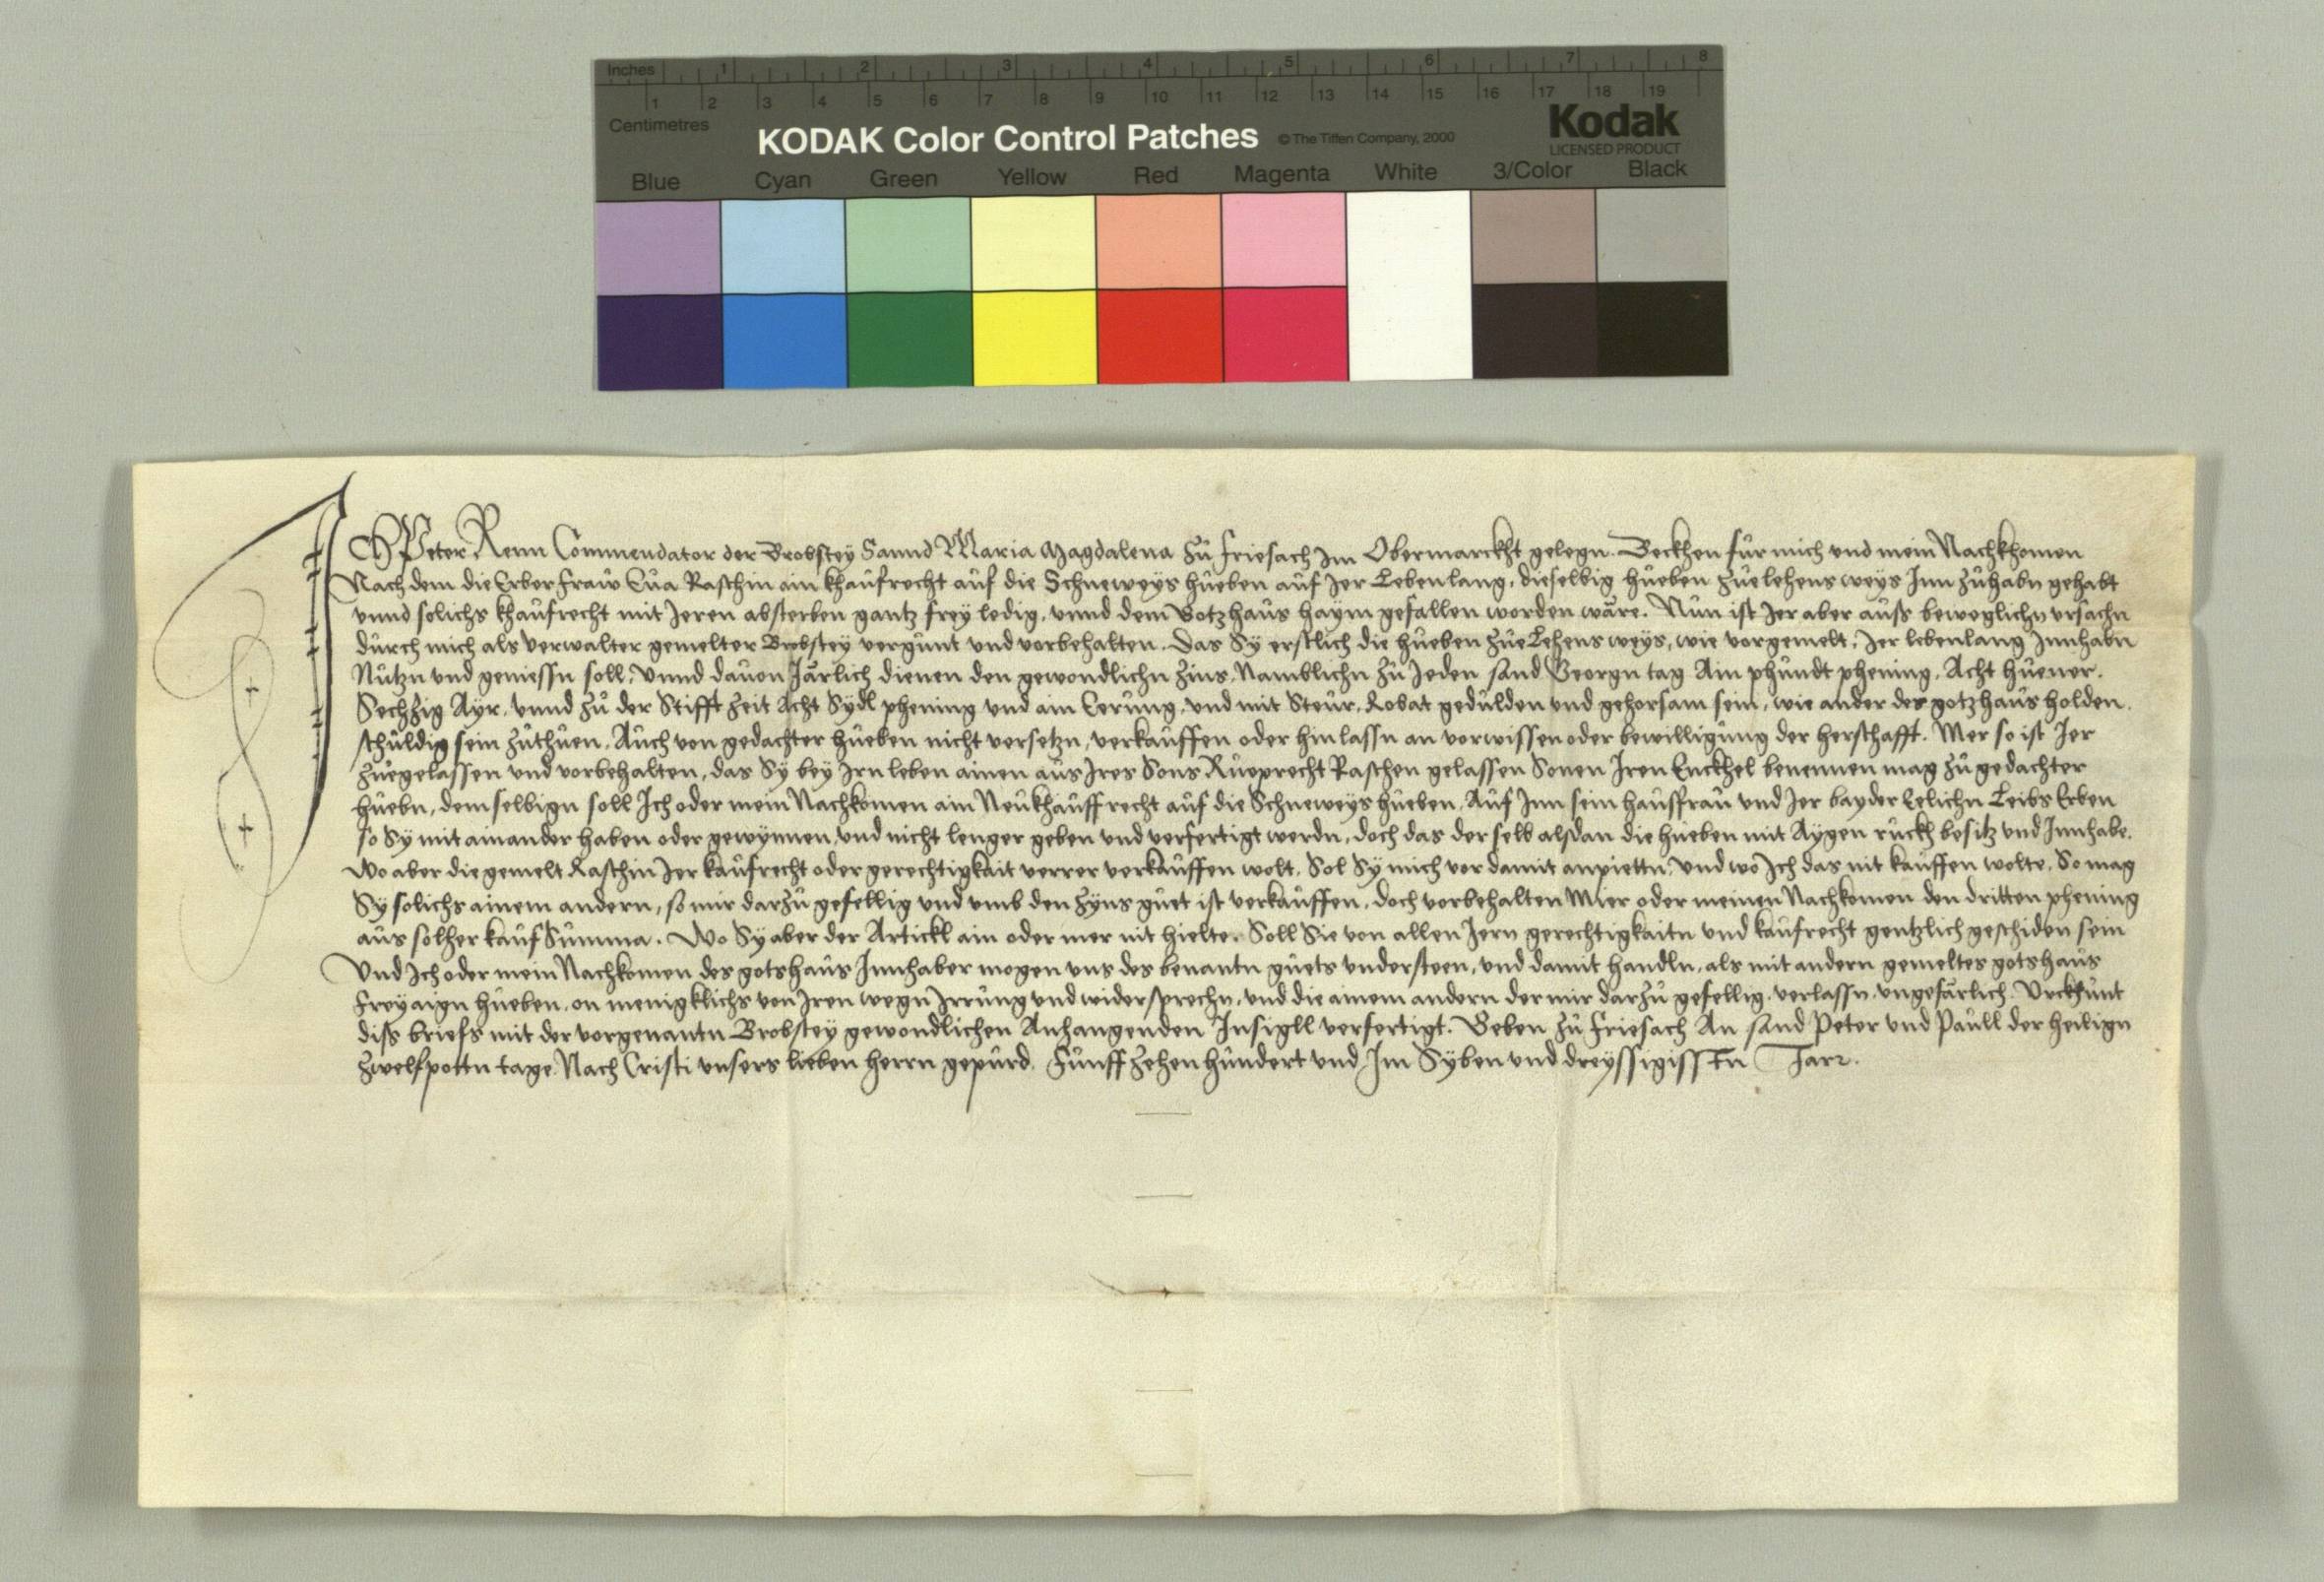 Inches 1 2 3 4 5 6 7 8
1 2 3 4 5 6 7 8 9 10 11 12 13 14 15 16 17 18 19
Centimetres
KODAK Color Control Patches © The Tiffen Company, 2000 Kodak
LICENSED PRODUCT
Blue Cyan Green Yellow Red Magenta White 3/Color Black
ICH Peter Renn Commendator der Brobstey Sannd Maria Magdalena zu Friesach Im Obermarckht gelegn. Beckhen für mich vnd mein Nachkhomen
Nach dem die Erber fraw Eua Raschin ain khaufrecht auf die Schneweys hueben auf Jer Lebenlang, dieselbig hueben zue lehens weys Inn zuhabn gehabt
vnnd solichs khaufrecht mit Jeren absterben gantz frey ledig, vnnd dem Gotzhaus haym gefallen worden wäre. Nun ist Jer aber auss beweglichn vrsachn
durch mich als verwalter gemelter Brobstey vergunt vnd vorbehalten. Das Sy erstlich die hueben zue Lehens weys, wie vorgemelt, Jer lebenlang Innhabn
Nutzn vnd geniessn soll, Vnnd dauon Järlich dienen den gewondlichn Zins, Namblichn zu Jeden sand Georgn tag Ain phundt phening, Acht huener,
Sechzig Ayr, vnnd zu der Stifft zeit Acht Sydl phening vnd ain Eerung, vnd mit Steur, Robat gedulden vnd gehorsam sein, wie ander des gotzhaus holden,
schuldig sein zuthuen, Auch von gedachter hueben nicht versetzn, verkauffen oder hinlassn an vorwissen oder bewilligung der herschafft. Mer so ist Jer
zuegelassen vnd vorbehalten, das Sy bey Jrn leben ainen aus Jres Sons Rueprecht Raschen gelassen Sonen Iren Enckhel benennen mag zu gedachter
huebn, demselbign soll Ich oder mein Nachkomen ain Neukhauffrecht auf die Schneweys hueben, Auf Inn sein hausfrau vnd Jer bayder Eelichn Leibs Erben
so Sy mit ainander haben oder gewynnen, vnd nicht lenger geben vnd verfertigt werdn, doch das der selb alsdan die hueben mit Aygen ruckh besitz vnd Innhabe.
Wo aber die gemelt Raschin Jer kaufrecht oder gerechtigkait verrer verkauffen wolt, Sol Sy mich vor damit anpiettn, Vnd wo Ich das nit kauffen wolte, So mag
Sy solichs ainem andern, so mir darzu gefellig vnd vmb den zyns guet ist verkauffen, doch vorbehalten Mier oder meinen Nachkomen den dritten phening
aus solher kauf Summa. Wo Sy aber der Artickl ain oder mer nit hielte, Soll Sie von allen Jern gerechtigkaitn vnd kaufrecht gentzlich geschiden sein
Vnd Ich oder mein Nachkomen des gotshaus Innhaber mogen vns des benantn guets vndersteen, vnd damit handln, als mit andern gemeltes gotshaus
Freyaign hueben, on menigklichs von Jren wegn Jrrung vnd widersprechn, vnd die ainem andern der mir darzu gefellig, verlassn, vngefärlich. Vrckhunt
diss briefs mit der vorgenantn Brobstey gewondlichen Anhangenden Insigll verfertigt. Geben zu Friesach An sand Peter vnd Paull der heilign
zwelfpottn tage Nach Cristi vnsers lieben herrn gepurd. Funffzehenhundert vnd Im Syben vnd dreyssigissten Jare.